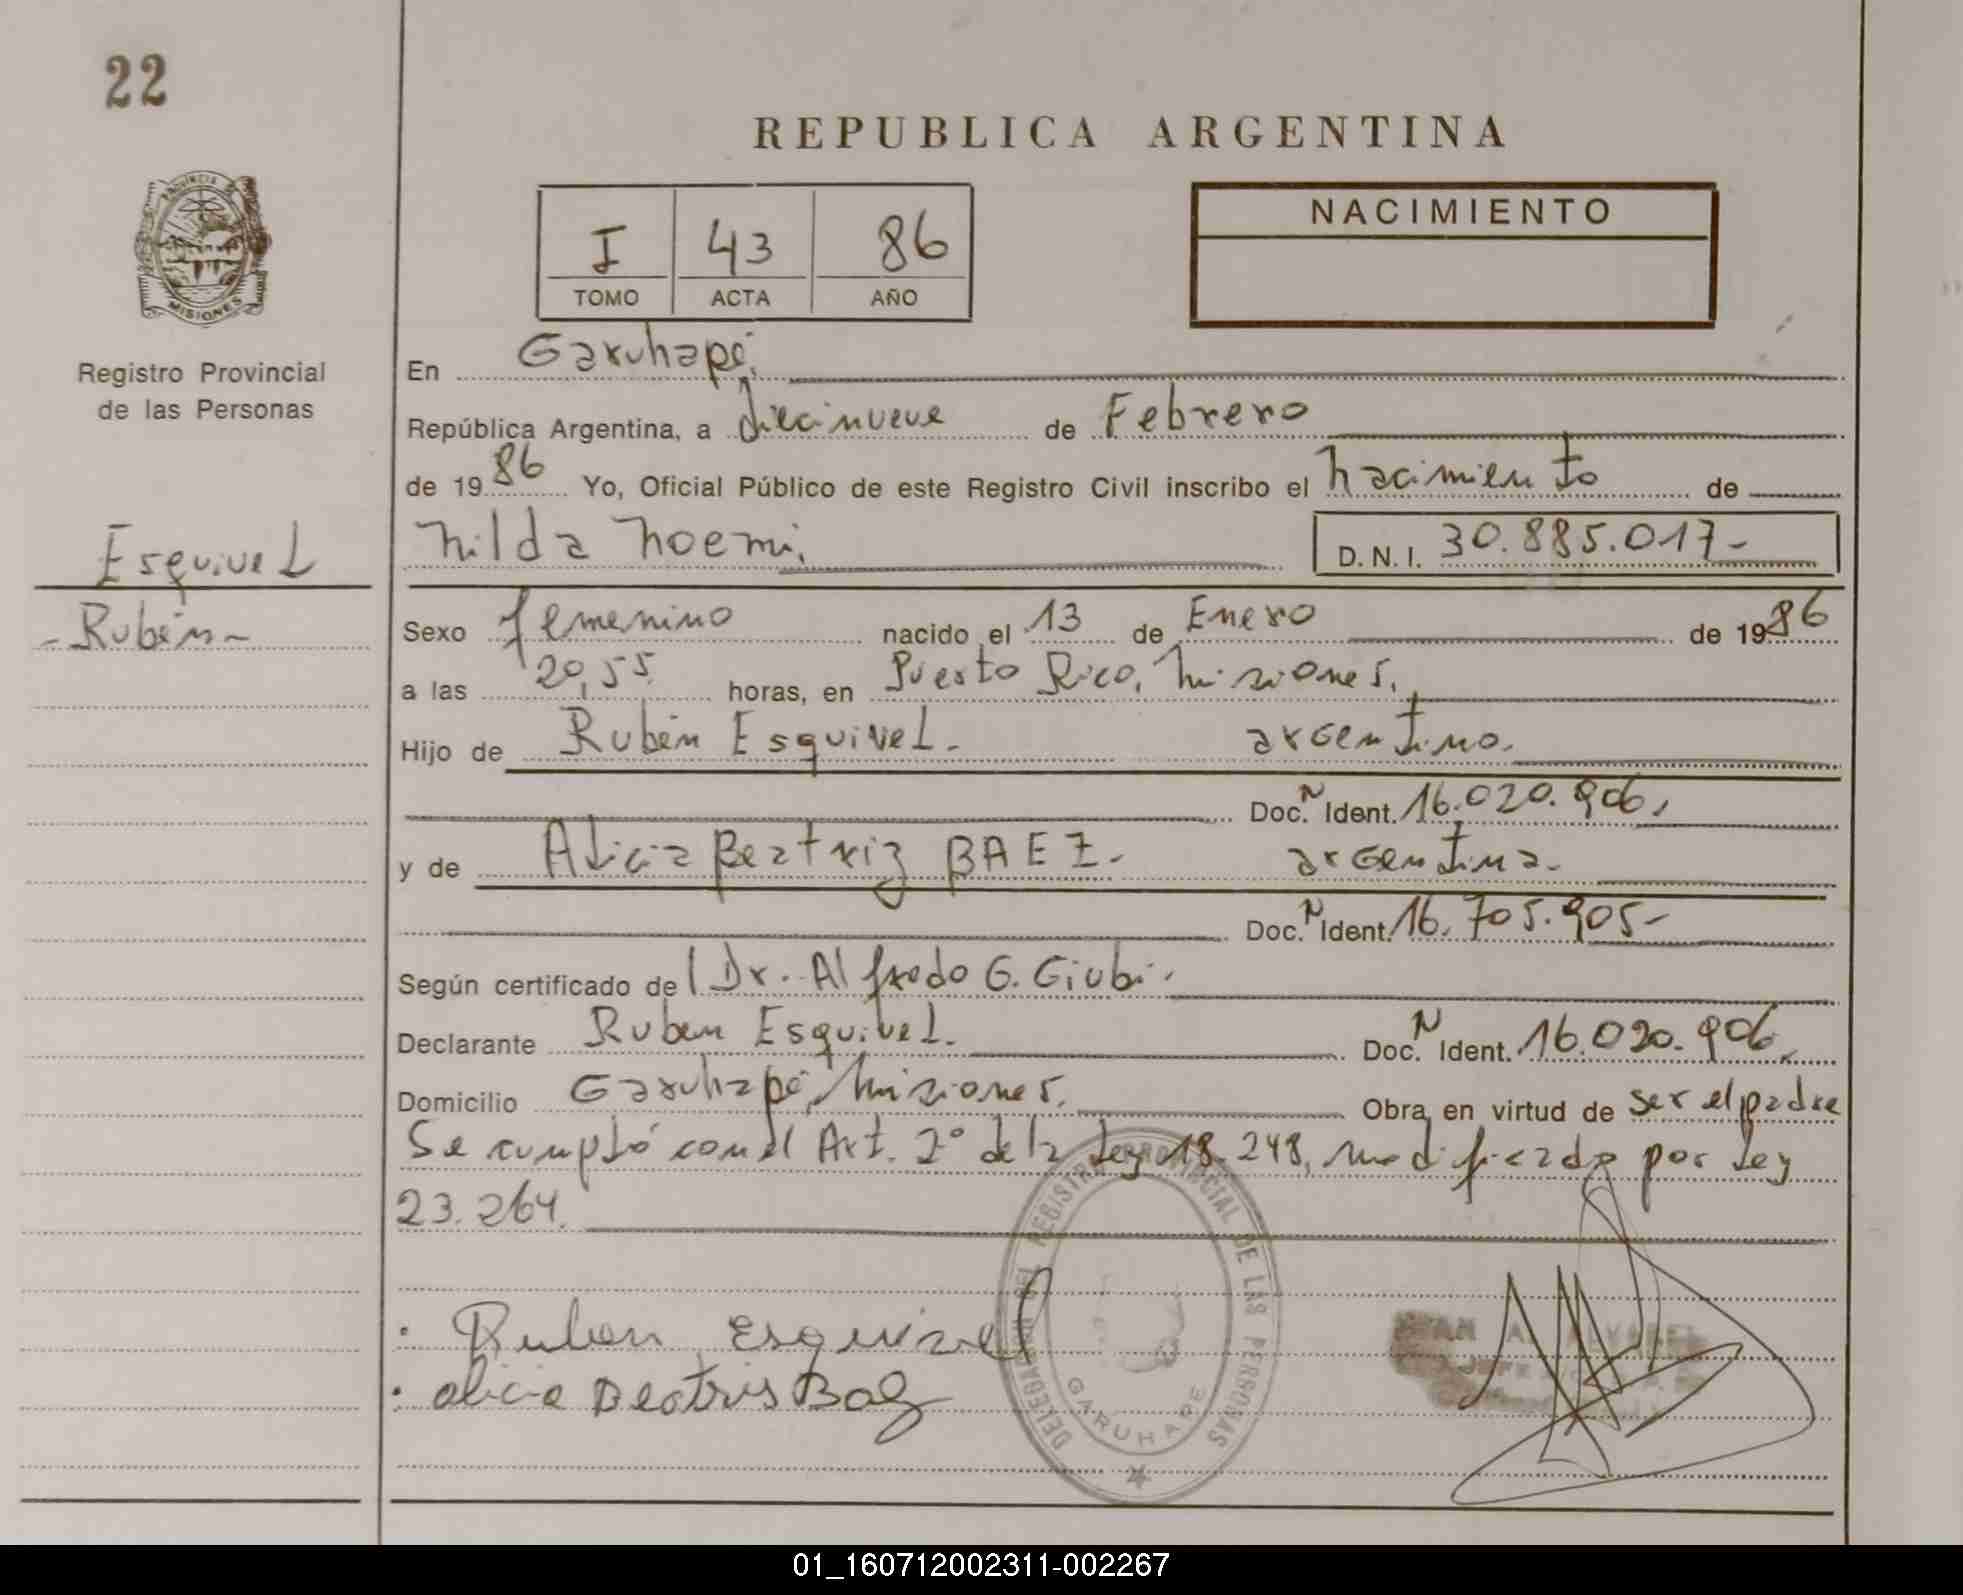 22
REPUBLICA ARGENTINA
PROVINCIA
MISIONES
I 43 86
TOMO ACTA AÑO
NACIMIENTO
Registro Provincial
de las Personas
Esquivel
- Rubén -
En Garuhapé,
República Argentina, a diecinueve de Febrero
de 1986 Yo, Oficial Público de este Registro Civil inscribo el nacimiento de
Nilda Noemi. D.N.I. 30.885.017-
Sexo femenino nacido el 13 de Enero de 1986
a las 20,55 horas, en Puerto Rico, Misiones.
Hijo de Rubén Esquivel. argentino.
Doc. N Ident. 16.020.906.
y de Alicia Beatriz BAEZ. argentina.
Doc. N Ident. 16.705.905-
Según certificado del Dr. Alfredo G. Giubi.
Declarante Ruben Esquivel. Doc. N Ident. 16.020.906.
Domicilio Garuhapé, Misiones. Obra en virtud de ser el padre
Se cumplió con el Art. 2° de la Ley 18.248, modificado por Ley
23.264.
DELEGADA DEL REGISTRO PROVINCIAL DE LAS PERSONAS
GARUHAPE
. Ruben Esquivel
. alicia Beatris Baez
01_160712002311-002267